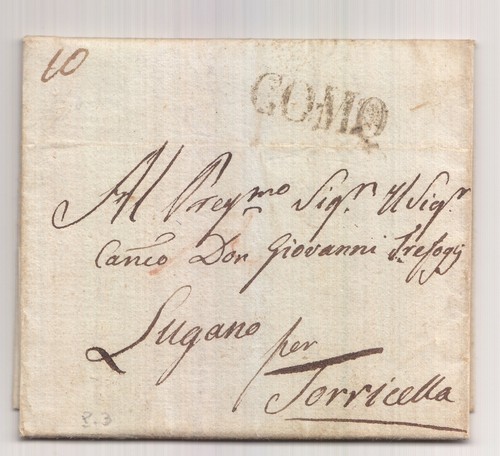 10
COMO
Al Preg.mo Sig.r Il Sig.r
Can.co Don Giovanni Trefogij
Lugano per
Torricella
P.3